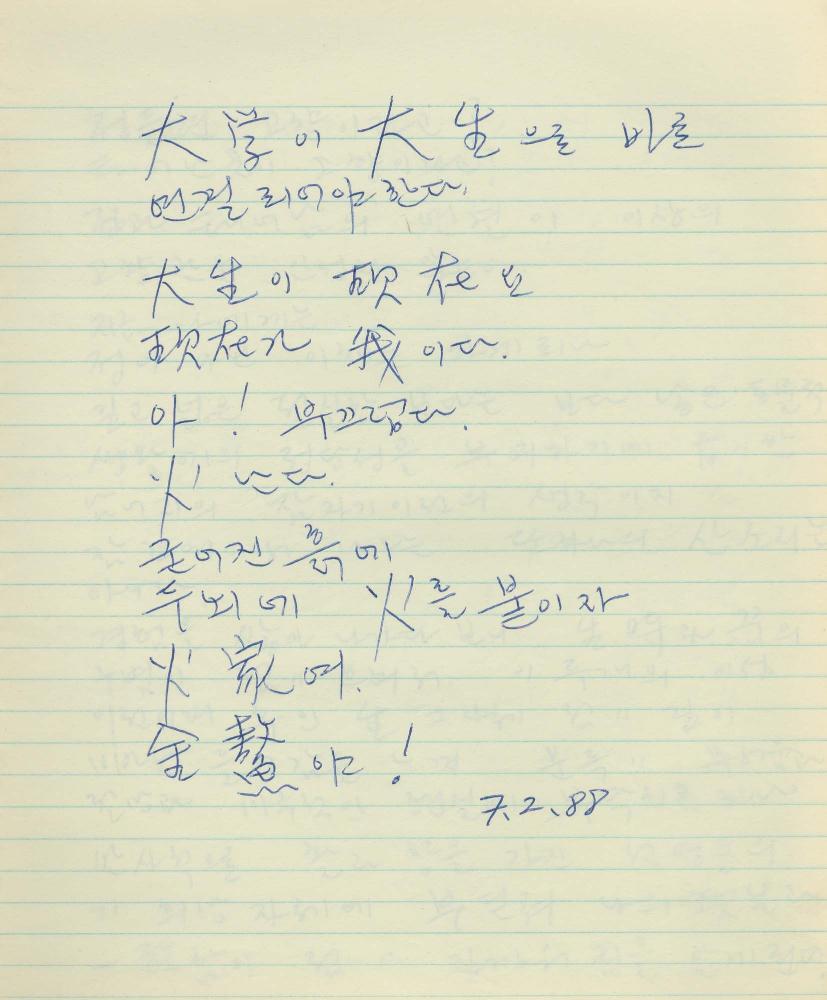 大学이 大生으로 바로
연결되어야 한다.
大生이 現在요
現在가 我이다.
아! 부끄럽다.
火난다.
굳어진 흙에
두뇌에 火를 붙이자
火家여.
金鰲야!
7.2.88